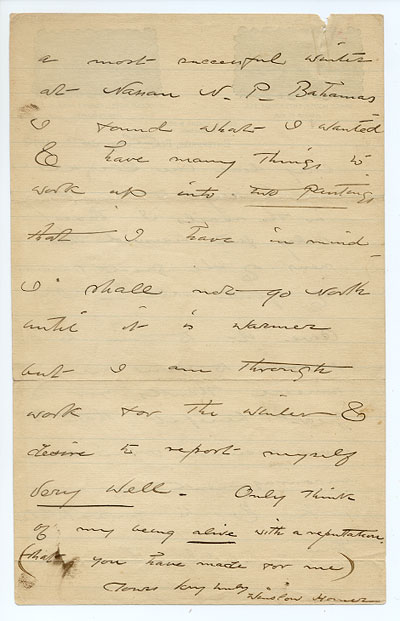 a most successful winter
at Nassau N. P. Bahamas
I found what I wanted
& have many things to
work up into two paintings
that I have in mind
I shall not go North
until it is warmer
but I am through
work for the winter &
desire to report myself
very well. Only think
of my being alive with a reputation
(that you have made for me)
Yours very truly
Winslow Homer